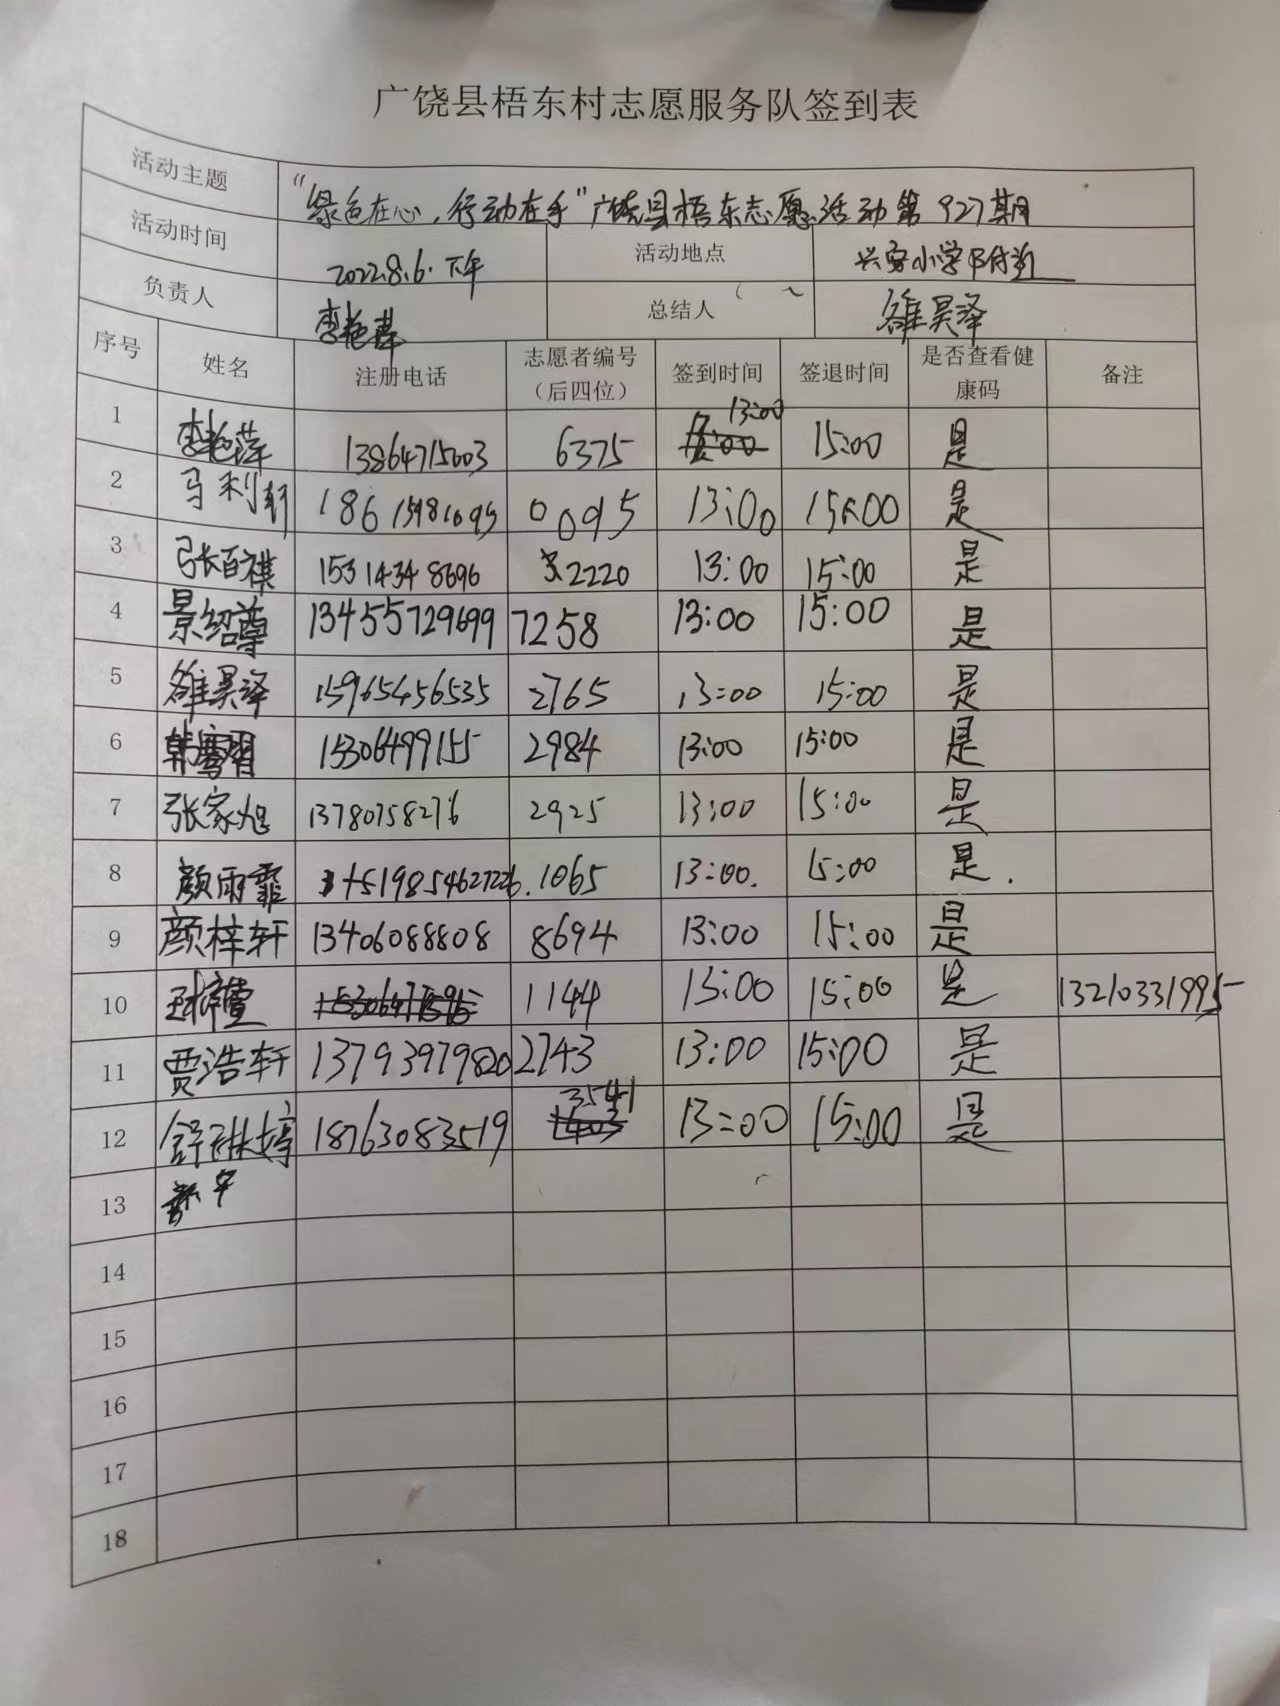 广饶县梧东村志愿服务队签到表
活动主题 “绿色在心，行动在手”广饶县梧东志愿活动第927期
活动时间 2022.8.6.下午 活动地点 兴安小学附近
负责人 李艳萍 总结人 雒昊泽
序号 姓名 注册电话 志愿者编号（后四位） 签到时间 签退时间 是否查看健康码 备注
1 李艳萍 13864715003 6375 13:00 15:00 是
2 马利轩 18615981095 0095 13:00 15:00 是
3 张百祺 15314348696 2220 13:00 15:00 是
4 景绍尊 13455729699 7258 13:00 15:00 是
5 雒昊泽 15965456535 2765 13:00 15:00 是
6 韩 15306499155 2984 13:00 15:00 是
7 张家旭 13780758276 2925 13:00 15:00 是
8 颜雨霏 1065 13:00. 15:00 是.
9 颜梓轩 13406088808 8694 13:00 15:00 是
10 1144 13:00 15:00 是 13210331995
11 贾浩轩 13793979820 2743 13:00 15:00 是
12 舒琳婷 18763083519 3541 13:00 15:00 是
13
14
15
16
17
18